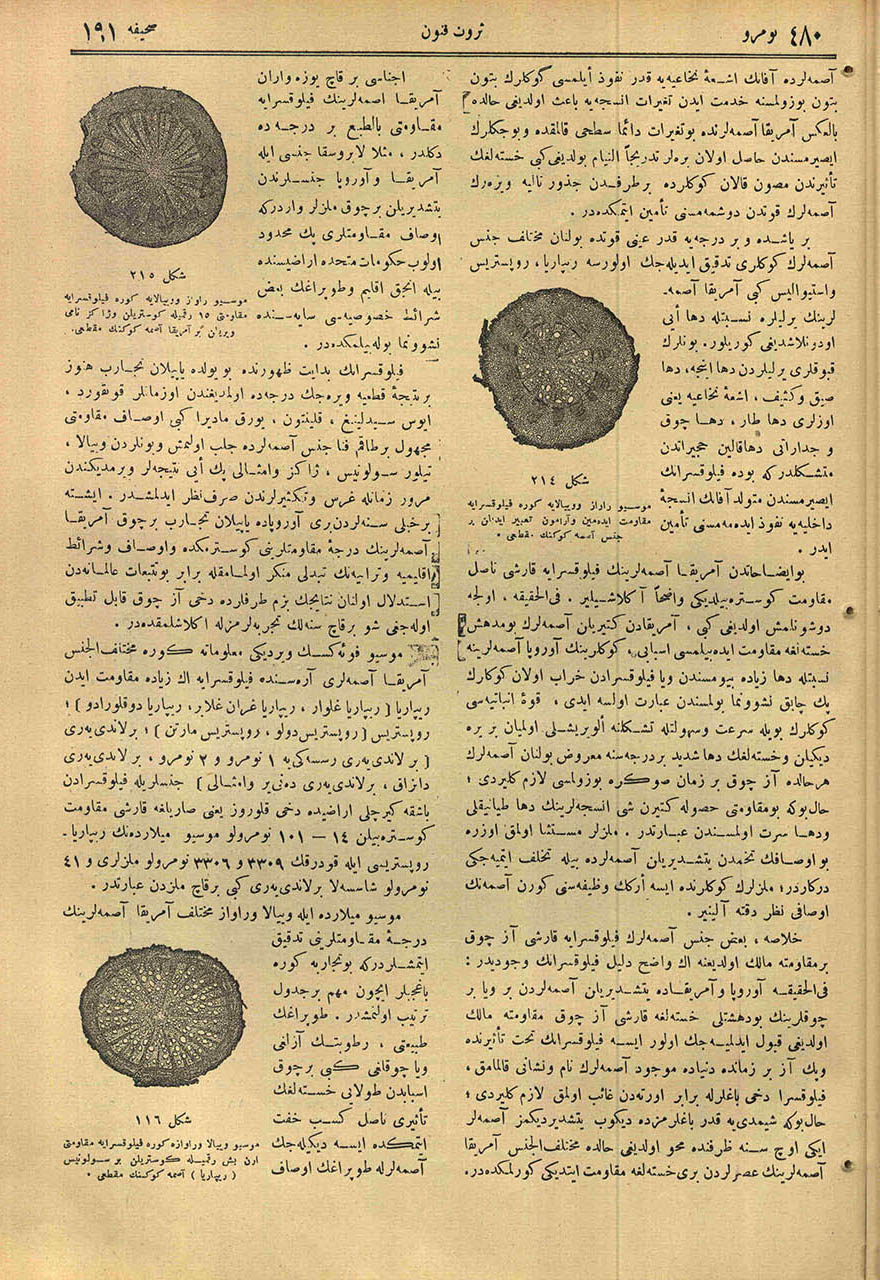 ٤٨٠ نومرو
ثروت فنون
صحیفه ١٩١
آصمه‌لرده آفاتك اشعهٔ نخاعیه‌یه قدر نفوذ ایلمسی كوكلرك بتون
بتون بوزولمسنه خدمت ایدن تغیرات انسجه‌یه باعث اولدیغی حالده
بالعكس آمریقا آصمه‌لرنده بوتغیرات دائما سطحی قالمقده و بوجكلرك
ایصیرمسندن حاصل اولان بره‌لر تدریجاً التیام بولدیغی كبی خسته‌لغك
تأثیرندن مصون قالان كوكلرده برطرفدن جذور تالیه ویره‌رك
آصمه‌لرك قوتدن دوشمه‌مسنی تأمین ایتمكده‌در .
بر یاشده و بر درجه‌یه قدر عینی قوتده بولنان مختلف جنس
آصمه‌لرك كوكلری تدقیق ایدیله‌جك اولورسه ریپاریا ، روپستریس
واستیوالیس كبی آمریقا آصمه‌-
لرینك یرلیلره نسبتله دها ایی
اودونلاشدیغی كوریلور. بونلرك
قبوقلری یرلیلردن دها اینجه، دها
صیق وكثیف ، اشعهٔ نخاعیه یعنی
اوزلری دها طار ، دها چوق
و جداراتی دها قالین حجیراتدن
متشكلدر كه بوده فیلوقسرانك
ایصیرمسندن متولد آفاتك انسجهٔ
داخلیه‌یه نفوذ ایده‌مه‌مسنی تأمین
ایدر .
شكل ٢١٤
موسیو راواز وویالایه كوره فیلوقسرایه
مقاومت ایده‌مین وآرامون تعبیر ایدیلن بر
جنس آصمه كوكنك مقطعی .
بوایضاحاتدن آمریقا آصمه‌لرینك فیلوقسرایه قارشی ناصل
مقاومت كوستره‌بیلدیكی واضحاً آكلاشیلیر . فی‌الحقیقه ، اولجه
دوشونلمش اولدیغی كبی ، آمریقادن كتیریلن آصمه‌لرك بومدهش
خسته‌لغه مقاومت ایده‌بیلمسی اسبابی ، كوكلرینك آوروپا آصمه‌لرینه
نسبتله دها زیاده بیومسندن ویا فیلوقسرادن خراب اولان كوكلرك
پك چابق نشوونما بولمسندن عبارت اولسه ایدی ، قوهٔ انباتیه‌سی
كوكلرك بویله سرعت وسهولتله تشكلنه ألویریشلی اولمیان بر یره
دیكیلن وخسته‌لغك دها شدید بردرجه‌سنه معروض بولنان آصمه‌لرك
هرحالده آز چوق بر زمان صوكره بوزولمسی لازم كلیردی ؛
حال‌بوكه بومقاومتی حصوله كتیرن شی انسجه‌لرینك دها طیانیقلی
ودها سرت اولمسندن عبارتدر . ملزلر مستثنا اولمق اوزره
بو اوصافك تخمدن یتشدیریلن آصمه‌لرده بیله تخلف ایتمیه‌جكی
دركاردر؛ ملزلرك كوكلرنده ایسه أركك وظیفه‌سنی كورن آصمه‌نك
اوصافی نظر دقته آلینیر .
خلاصه ، بعض جنس آصمه‌لرك فیلوقسرایه قارشی آز چوق
برمقاومته مالك اولدیغنه اك واضح دلیل فیلوقسرانك وجودیدر :
فی‌الحقیقه آوروپا وآمریقاده یتشدیریلن آصمه‌لردن بر ویا بر
چوقلرینك بودهشتلی خسته‌لغه قارشی آز چوق مقاومته مالك
اولدیغی قبول ایدلمیه‌جك اولور ایسه فیلوقسرانك تحت تأثیرنده
وپك آز بر زمانده دنیاده موجود آصمه‌لرك نام ونشانی قالمامق ،
فیلوقسرا دخی باغلرله برابر اورته‌دن غائب اولمق لازم كلیردی ؛
حال‌بوكه شیمدی‌یه قدر باغلرمزده دیكوب یتشدیردیكمز آصمه‌لر
ایكی اوچ سنه ظرفنده محو اولدیغی حالده مختلف‌الجنس آمریقا
آصمه‌لرینك عصرلردن بری خسته‌لغه مقاومت ایتدیكی كورلمكده‌در.
اجناسی بر قاچ یوزه واران
آمریقا آصمه‌لرینك فیلوقسرایه
مقاومتی بالطبع بر درجه ده
دكلدر ، مثلا لابروسقا جنسی ایله
آمریقا وآوروپا جنسلرندن
یتشدیریلن بر چوق ملزلر واردركه
اوصاف مقاومتلری پك محدود
اولوب حكومات متحده اراضیسنده
بیله انجق اقلیم وطوپراغك بعض
شرائط خصوصیه‌سی سایه‌سنده
نشوونما بوله‌بیلمكده‌در .
شكل ٢١٥
موسیو راواز وویالایه كوره فیلوقسرایه
مقاومتی ١٥ رقمیله كوستریلن وژاكز نامی
ویریلن بر آمریقا آصمه كوكنك مقطعی.
فیلوقسرانك بدایت ظهورنده بو یولده یاپیلان تجارب هنوز
بر نتیجهٔ قطعیه ویره‌جك درجه‌ده اولمدیغندن اوزمانلر قونقورد ،
ایوس سیدلینغ ، قلینتون ، یورق مادیرا كبی اوصاف مقاومتی
مجهول برطاقم فنا جنس آصمه‌لرده جلب اولنمش وبونلردن ویالا ،
تیلور سولونیس ، ژاكز وامثالی پك أیی نتیجه‌لر ویرمدیكندن
مرور زمانله غرس وتكثیرلرندن صرف‌نظر ایدلمشدر . ایشته
برخیلی سنه‌لردن‌بری آوروپاده یاپیلان تجارب برچوق آمریقا
آصمه‌لرینك درجهٔ مقاومتلرینی كوسترمكده واوصاف وشرائط
اقلیمیه وترابیه‌نك تبدلی منكر اولمامقله برابر بوتتبعات عالمانه‌دن
استدلال اولنان نتایجك بزم طرفلرده دخی آز چوق قابل تطبیق
اوله‌جغی شو برقاچ سنه‌لك تجربه‌لرمزله آكلاشلمقده‌در .
موسیو فوئه‌كسك ویردیكی معلوماته كوره مختلف‌الجنس
آمریقا آصمه‌لری آره‌سنده فیلوقسرایه اك زیاده مقاومت ایدن
ریپاریا ( ریپاریا غلوار ، ریپاریا غران غلابر، ریپاریا دوقلورادو ) ؛
روپستریس ( روپستریس دولو ، روپستریس مارتن ) ؛ برلاندی‌یه‌ری
( برلاندی‌یه‌ری رسسه‌كی‌یه ١ نومرو و ٢ نومرو ، برلاندی‌یه‌ری
دانزاق ، برلاندی‌یه‌ری ده‌نی‌یر وامثالی ) جنسلریله فیلوقسرادن
باشقه كیرجلی اراضیده دخی قلوروز یعنی صاریلغه قارشی مقاومت
كوستره‌بیلن ١٤ — ١٠١ نومرولو موسیو میلارده‌نك ریپاریا-
روپستریسی ایله قودرقك ٣٣٠٩ و ٣٣٠٦ نومرولو ملزلری و ٤١
نومرولو شاسسه‌لا برلاندی‌یه‌ری كبی برقاچ ملزدن عبارتدر .
موسیو میلارده ایله ویالا وراواز مختلف آمریقا آصمه‌لرینك
درجهٔ مقاومتلرینی تدقیق
ایتمشلردركه بو تجاربه كوره
باغجیلر ایچون مهم برجدول
ترتیب اولنمشدر . طوپراغك
طبیعتی ، رطوبتك آزلغی
ویا چوقلغی كبی برچوق
اسبابدن طولایی خسته‌لغك
تأثیری ناصل كسب خفت
ایتمكده ایسه دیكیله‌جك
آصمه‌لرله طوپراغك اوصاف
شكل ١١٦
موسیو ویالا وراوازه كوره فیلوقسرایه مقاومتی
اون بش رقمیله كوستریلن بر سولونیس
( ریپاریا ) آصمه كوكنك مقطعی .